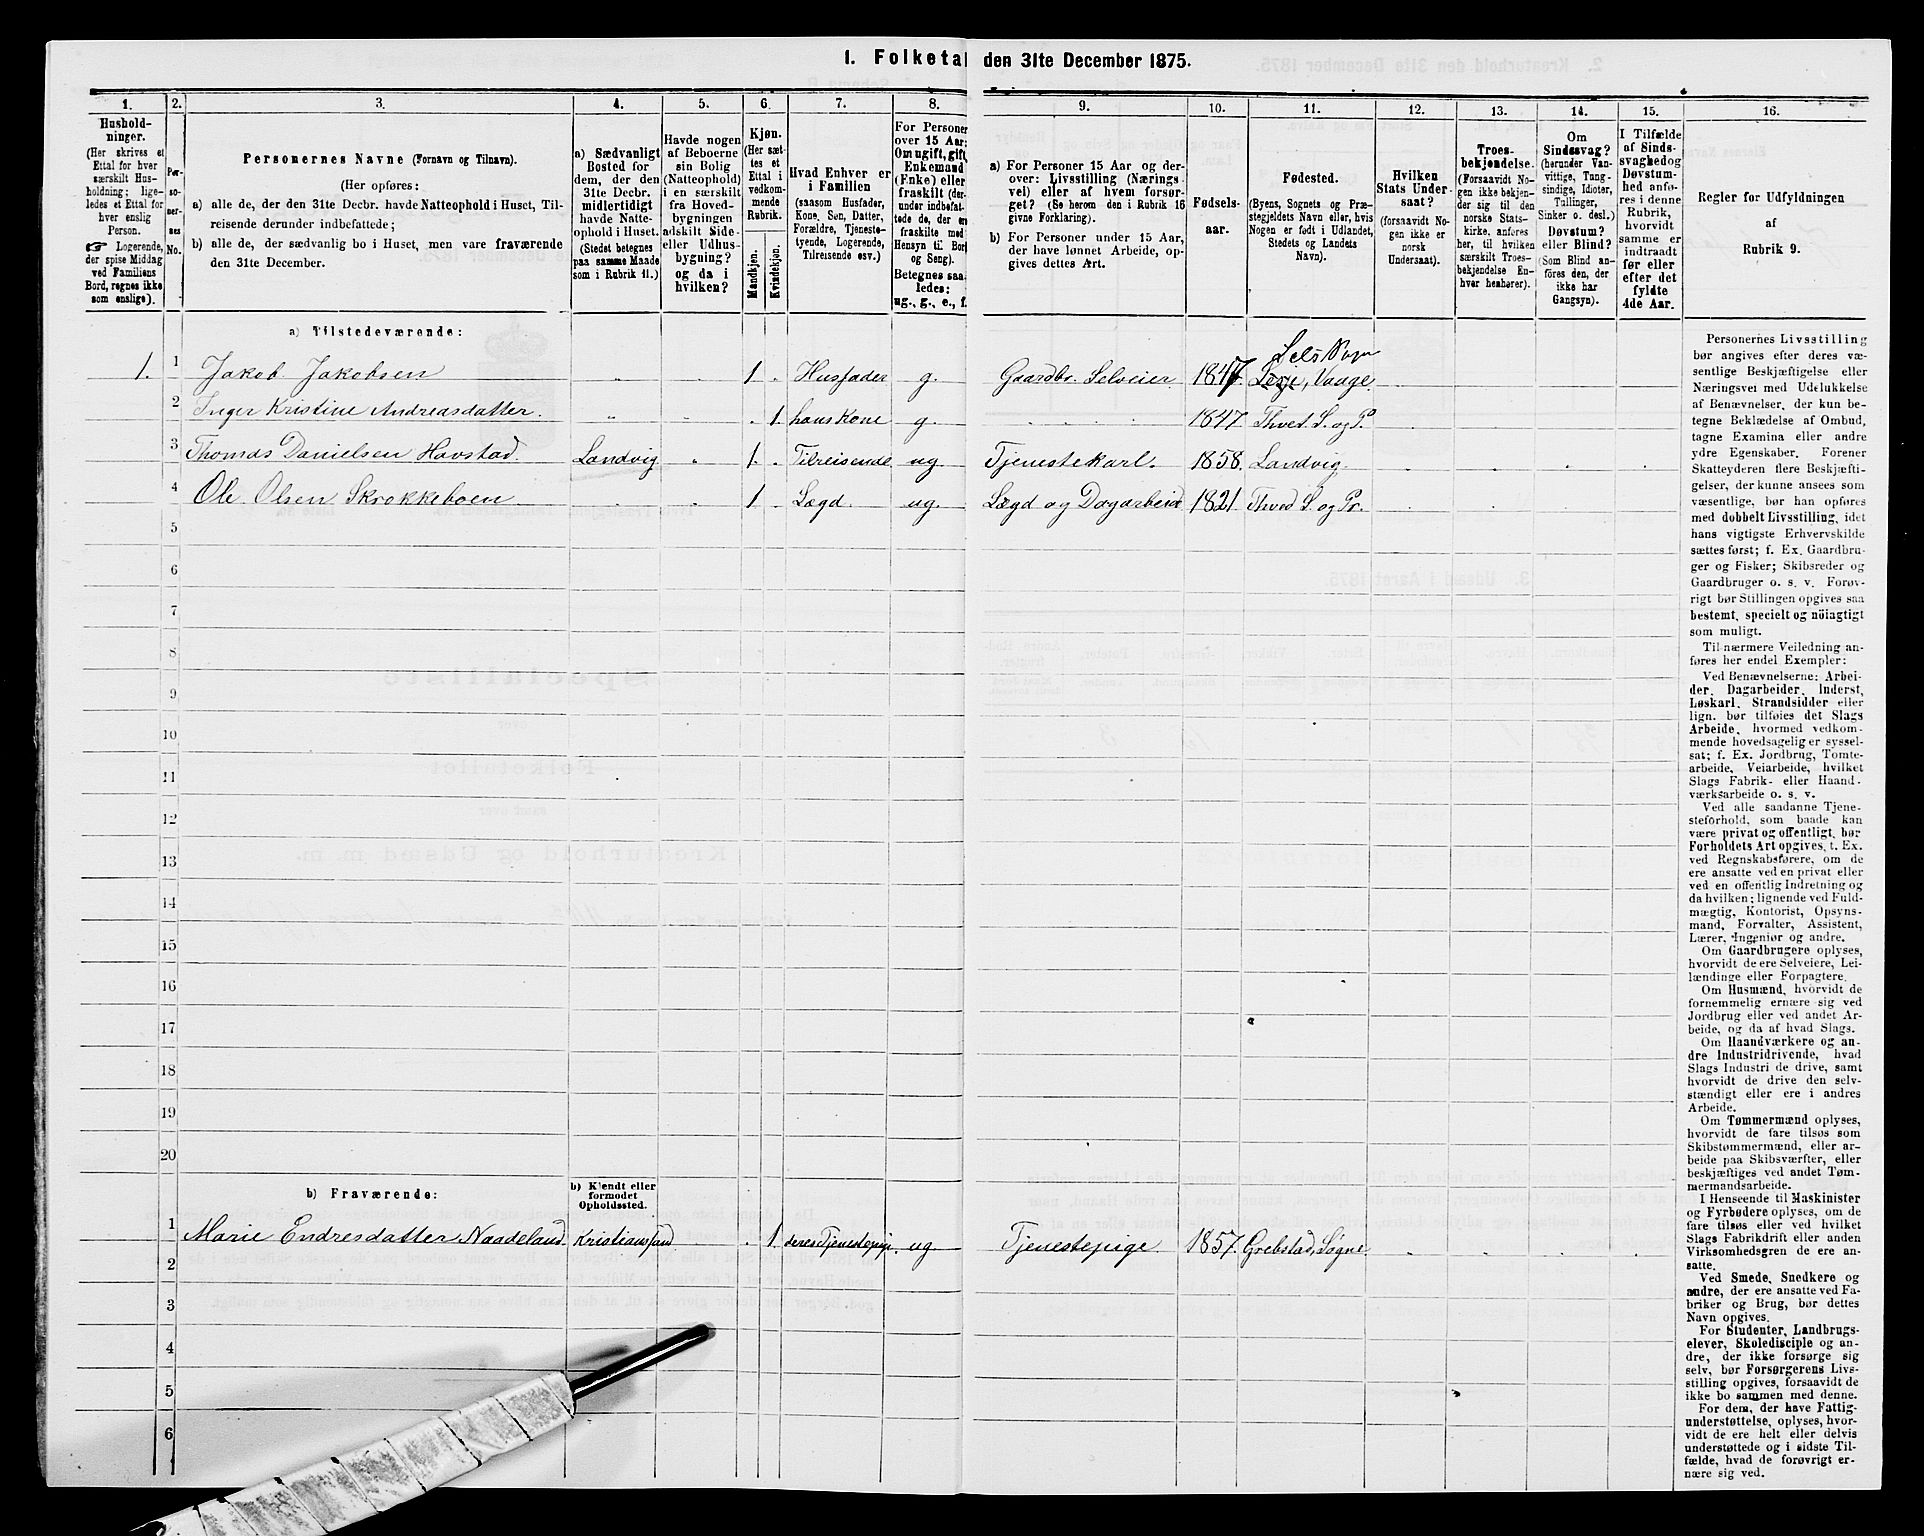 1. Folketal den 31te December 1875.
1. 2. 3. 4. 5. 6. 7. 8. 9. 10. 11. 12. 13. 14. 15. 16.
Hushold-
ninger.
(Her skrives et
Ettal for hver
særskilt Hus-
holdning; lige-
ledes et Ettal for
hver enslig
Person.
☞ Logerende,
der spise Middag
ved Familiens
Bord, regnes ikke
som enslige).
Per-
so-
ner-
nes
No.
Personernes Navne (Fornavn og Tilnavn).
(Her opføres:
a) alle de, der den 31te Decbr. havde Natteophold i Huset, Til-
reisende derunder indbefattede;
b) alle de, der sædvanlig bo i Huset, men vare fraværende
den 31te December.
a) Sædvanligt
Bosted for
dem, der den
31te Decbr.
midlertidigt
havde Natte-
ophold i Huset.
(Stedet betegnes
paa samme Maade
som i Rubrik 11.)
Havde nogen
af Beboerne
sin Bolig
(Natteophold)
i en særskilt
fra Hoved-
bygningen
adskilt Side-
eller Udhus-
bygning?
og da i
hvilken?
Kjøn.
(Her sæt-
tes et
Ettal i
vedkom-
mende
Rubrik.
Mandkjøn.
Kvindekjøn.
Hvad Enhver er
i Familien
(saasom Husfader,
Kone, Søn, Datter,
Forældre, Tjeneste-
tyende, Logerende,
Tilreisende osv.)
For Personer
over 15 Aar:
Om ugift, gift,
Enkemand
(Enke) eller
fraskilt (der-
under indbefat-
tede de, der ere
fraskilte med
Hensyn til Bord
og Seng).
Betegnes saa-
ledes:
ug., g., e., f.
a) For Personer 15 Aar og der-
over: Livsstilling (Nærings-
vei) eller af hvem forsør-
get? (Se herom den i Rubrik 16
givne Forklaring).
b) For Personer under 15 Aar,
der have lønnet Arbeide, op-
gives dettes Art.
Fødsels-
aar.
Fødested.
(Byens, Sognets og Præ-
stegjeldets Navn eller, hvis
Nogen er født i Udlandet,
Stedets og Landets
Navn).
Hvilken
Stats Under-
saat?
(forsaavidt No-
gen ikke er
norsk
Undersaat).
Troes-
bekjendelse.
(Forsaavidt No-
gen ikke bekjen-
der sig til den
norske Stats-
kirke, anføres
her, til hvilken
særskilt Troes-
bekjendelse En-
hver henhører).
Om
Sindssvag?
(herunder Van-
vittige, Tung-
sindige, Idioter,
Tullinger,
Sinker o. desl.)
Døvstum?
eller Blind?
(Som Blind an-
føres den, der
ikke har
Gangsyn).
I Tilfælde
af Sinds-
svaghed og
Døvstum-
hed anfø-
res i denne
Rubrik,
hvorvidt
samme er
indtraadt
før eller
efter det
fyldte
4de Aar.
Regler for Udfyldningen
af
Rubrik 9.
a) Tilstedeværende:
1. 1 Jakob Jakobsen 1 Husfader g. Gaardbr. Selveier 1847. Lels Sogn Vaage
2 Inger Kristine Andreasdatter. 1 hans kone g. 1847. Thved S. og P.
3 Thomas Danielsen Havstad. Landvig 1. Tilreisende ug Tjenestekarl. 1858. Landvig.
4 Ole Olsen Skrokkeboen 1 Lægd. ug. Lægd og Dagarbeid 1821 Thved S. og Pr.
5
6
7
8
9
10
11
12
13
14
15
16
17
18
19
20
b) Fraværende:
b) Kjendt eller
formodet
Opholdssted.
1 Marie Endresdatter Naadeland Kristianssand 1 deres Tjenestepige. ug Tjenestepige. 1857. Grebstad, Søgne
2
3
4
5
6
Personernes Livsstilling
bør angives efter deres væ-
sentlige Beskjæftigelse eller
Næringsvei med Udelukkelse
af Benævnelser, der kun be-
tegne Beklædelse af Ombud,
tagne Examina eller andre
ydre Egenskaber. Forener
Skatteyderen flere Beskjæfti-
gelser, der kunne ansees som
væsentlige, bør han opføres
med dobbelt Livsstilling, idet
hans vigtigste Erhvervskilde
sættes først; f. Ex. Gaardbru-
ger og Fisker; Skibsreder og
Gaardbruger o. s. v. Forøv-
rigt bør Stillingen opgives saa
bestemt, specielt og nöiagtigt
som muligt.
Til nærmere Veiledning an-
føres her endel Exempler:
Ved Benævnelserne: Arbei-
der, Dagarbeider, Inderst,
Løskarl, Strandsidder eller
lign. bør tilføies det Slags
Arbeide, hvormed vedkom-
mende hovedsagelig er syssel-
sat; f. Ex. Jordbrug, Tomte-
arbeide, Veiarbeide, hvilket
Slags Fabrik- eller Haand-
værksarbeide o. s. v.
Ved alle saadanne Tjene-
steforhold, som baade kan
være privat og offentligt, bør
Forholdets Art opgives, t. Ex.
ved Regnskabsførere, om de
ere ansatte ved en privat eller
ved en offentlig Indretning og
da hvilken; lignende ved Fuld-
mægtig, Kontorist, Opsyns-
mand, Forvalter, Assistent,
Lærer, Ingeniør og andre.
Om Gaardbrugere oplyses,
hvorvidt de ere Selveiere, Lei-
lændinge eller Forpagtere.
Om Husmænd, hvorvidt de
fornemmelig ernære sig ved
Jordbrug eller ved andet Ar-
beide, og da af hvad Slags.
Om Haandværkere og an-
dre Industridrivende, hvad
Slags Industri de drive, samt
hvorvidt de drive den selv-
stændigt eller ere i andres
Arbeide.
Om Tømmermænd oplyses,
hvorvidt de fare tilsøs som
Skibstømmermænd, eller ar-
beide paa Skibsværfter, eller
beskjæftiges ved andet Tøm-
mermandsarbeide.
I Henseende til Maskinister
og Fyrbødere oplyses, om de
fare tilsøs eller ved hvilket
Slags Fabrikdrift eller anden
Virksomhedsgren de ere an-
satte.
Ved Smede, Snedkere og
andre, der ere ansatte ved Fa-
briker og Brug, bør dettes
Navn opgives.
For Studenter, Landbrugs-
elever, Skoledisciple og an-
dre, der ikke forsørge sig
selv, bør Forsørgerens Livs-
stilling opgives, forsaavidt de
ikke bo sammen med denne.
For dem, der have Fattig-
understøttelse, oplyses, hvor-
vidt de ere helt eller delvis
understøttede og i sidste Til-
fælde, hvad de forøvrigt er-
nære sig ved.